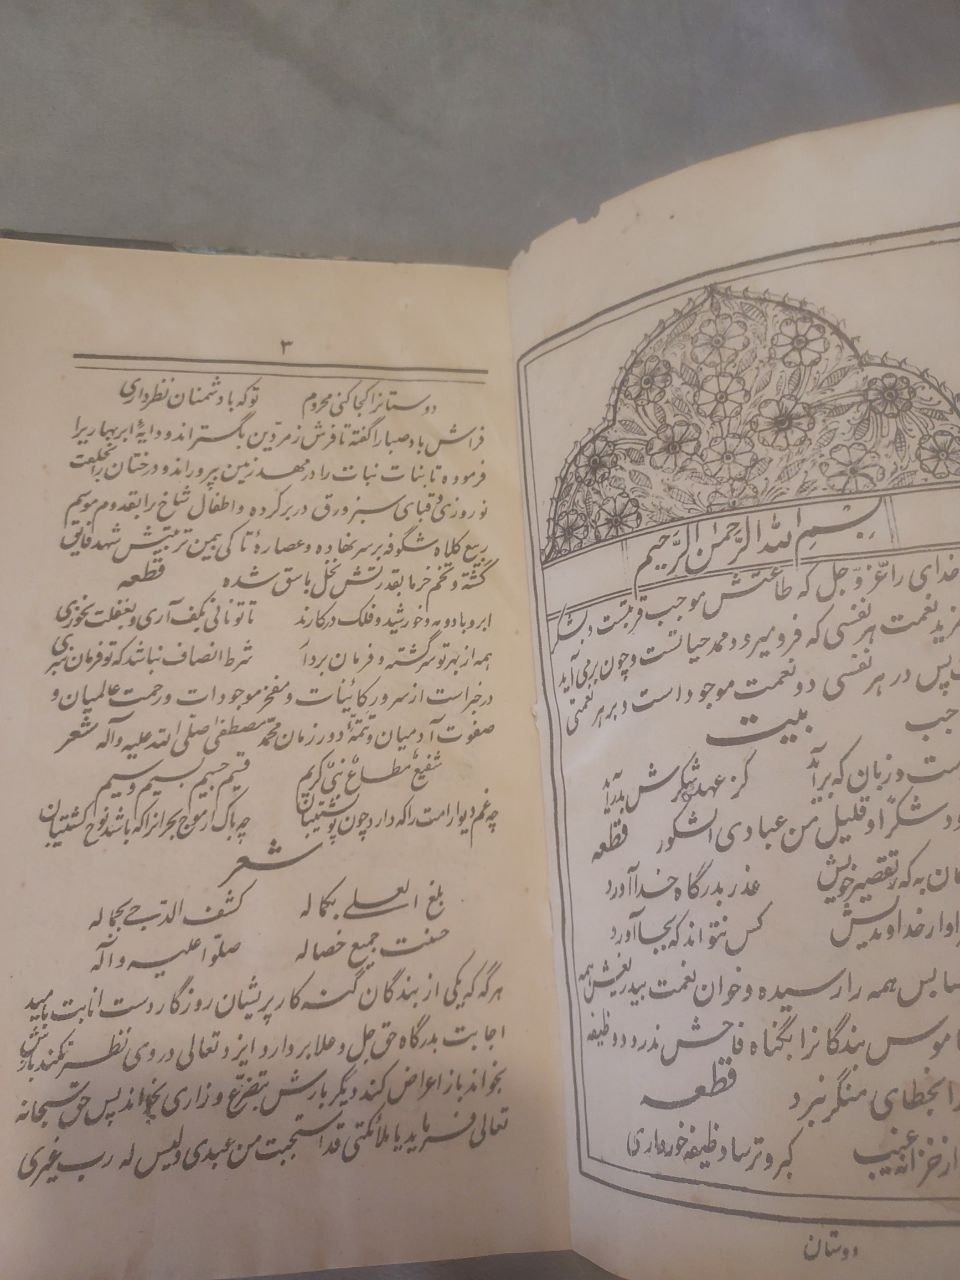 بسم الله الرحمن الرحیم
خدای را عزّ و جل که طاعتش موجب قربتست و بشکر
مزید نعمت هر نفسی که فرو میرود ممد حیاتست و چون برمی آید
پس در هر نفسی دو نعمت موجود است و بر هر نعمتی
واجب بیت
دست و زبان که برآید کز عهده شکرش بدرآید
داود شکرًا و قلیل من عبادی الشکور قطعه
همان به که تقصیر خویش عذر بدرگاه خدا آورد
سزاوار خداوندیش کس نتواند که بجا آورد
حسابس همه را رسیده و خوان نعمت بیدریغش همه
ناموس بندگانرا بگناه فاحش ندرد و وظیفه
بخطای منکر نبرد قطعه
از خزانه غیب کبر و ترسا وظیفه خور داری
دوستان
۳
دوستانرا کجا کنی محروم توکه با دشمنان نظر داری
فراش باد صبا را گفته تا فرش زمردین بگستراند و دایهٔ ابر بهاریرا
فرموده تا بنات نبات را در مهد زمین پروراند و درختان را بخلعت
نوروزی قبای سبز ورق در بر کرده و اطفال شاخ را بقدوم موسم
ربیع کلاه شگوفه بر سر نهاده و عصارهٔ تاکی بیمن تربیتش شهد فایق
گشته و تخم خرما بقدرتش نخل باسق شده قطعه
ابر و باد و مه و خورشید و فلک در کارند تا تو نانی بکف آری و بغفلت نخوری
همه از بهر تو سرگشته و فرمان بردار شرط انصاف نباشد که تو فرمان نبری
در خبر است از سرور کائینات و مفخر موجودات و رحمت عالمیان و
صفوت آدمیان و تتمهٔ دور زمان محمّد مصطفی صلّی الله علیه و آله شعر
شفیعٌ مطاعٌ نبیٌّ کریم قسیم جسیم بسیم وسیم
چه غم دیوار امت را که دارد چون تو پشتیبان چه باک از موج بحر انرا که باشد نوح کشتیبان
شعر
بلغ العلے بکماله کشف الدّجے بجماله
حسنت جمیع خصاله صلّوا علیه و آله
هرگه که یکی از بندگان گنه کار پریشان روزگار دست انابت بامید
اجابت بدرگاه حق جل و علا بردارد ایزد تعالی در وی نظر نکند بازش
بخواند باز اعراض کند دیگر بارش بتضرّع و زاری بخواند پس حق سبحانه
تعالی فرماید یا ملائکتی قد استحیت من عبدی و لیس له رب غیری